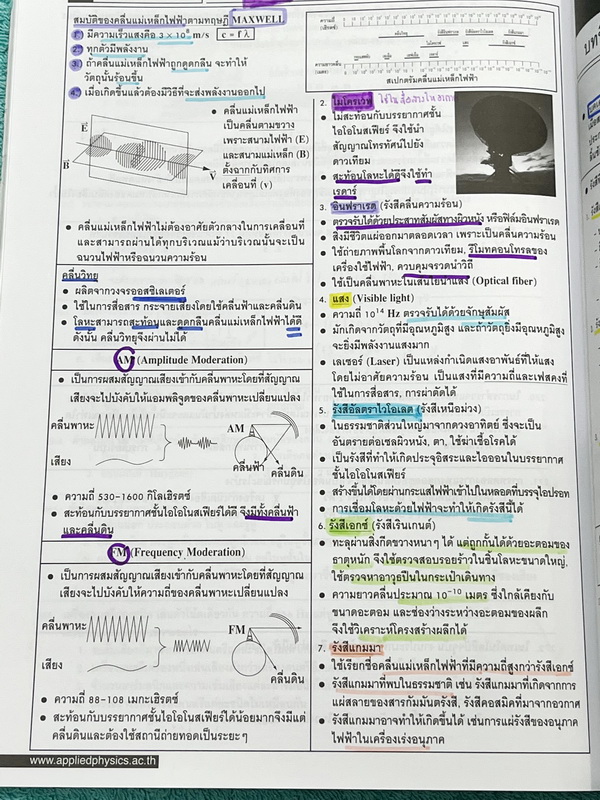 สมบัติของคลื่นแม่เหล็กไฟฟ้าตามทฤษฎี MAXWELL
1. มีความเร็วแสงคือ 3 × 10⁸ m/s c = f λ
2. ทุกตัวมีพลังงาน
3. ถ้าคลื่นแม่เหล็กไฟฟ้าถูกดูดกลืน จะทำให้
วัตถุนั้นร้อนขึ้น
4. เมื่อเกิดขึ้นแล้วต้องมีวิธีที่จะส่งพลังงานออกไป
E
B
V
• คลื่นแม่เหล็กไฟฟ้า
เป็นคลื่นตามขวาง
เพราะสนามไฟฟ้า (E)
และสนามแม่เหล็ก (B)
ตั้งฉากกับทิศการ
เคลื่อนที่ (v)
• คลื่นแม่เหล็กไฟฟ้าไม่ต้องอาศัยตัวกลางในการเคลื่อนที่
และสามารถผ่านได้ทุกบริเวณแม้ว่าบริเวณนั้นจะเป็น
ฉนวนไฟฟ้าหรือฉนวนความร้อน
คลื่นวิทยุ
• ผลิตจากวงจรออสซิเลเตอร์
• ใช้ในการสื่อสาร กระจายเสียงโดยใช้คลื่นฟ้าและคลื่นดิน
• โลหะสามารถสะท้อนและดูดกลืนคลื่นแม่เหล็กไฟฟ้าได้ดี
ดังนั้น คลื่นวิทยุจึงผ่านไม่ได้
AM (Amplitude Moderation)
• เป็นการผสมสัญญาณเสียงเข้ากับคลื่นพาหะโดยที่สัญญาณ
เสียงจะไปบังคับให้แอมพลิจูดของคลื่นพาหะเปลี่ยนแปลง
คลื่นพาหะ
AM
เสียง
คลื่นฟ้า
คลื่นดิน
• ความถี่ 530-1600 กิโลเฮิรตซ์
• สะท้อนกับบรรยากาศชั้นไอโอโนสเฟียร์ได้ดี จึงมีทั้งคลื่นฟ้า
และคลื่นดิน
FM (Frequency Moderation)
• เป็นการผสมสัญญาณเสียงเข้ากับคลื่นพาหะโดยที่สัญญาณ
เสียงจะไปบังคับให้ความถี่ของคลื่นพาหะเปลี่ยนแปลง
คลื่นพาหะ
FM
เสียง
คลื่นดิน
• ความถี่ 88-108 เมกะเฮิรตซ์
• สะท้อนกับบรรยากาศชั้นไอโอโนสเฟียร์ได้น้อยมากจึงมีแต่
คลื่นดินและต้องใช้สถานีถ่ายทอดเป็นระยะๆ
สเปกตรัมคลื่นแม่เหล็กไฟฟ้า
2. ไมโครเวฟ
• ไม่สะท้อนกับบรรยากาศชั้น
ไอโอโนสเฟียร์ จึงใช้นำ
สัญญาณโทรทัศน์ไปยัง
ดาวเทียม
• สะท้อนโลหะได้ดีจึงใช้ทำ
เรดาร์
3. อินฟราเรด (รังสีคลื่นความร้อน)
• ตรวจรับได้ด้วยประสาทสัมผัสทางผิวหนัง หรือฟิล์มอินฟราเรด
• สิ่งมีชีวิตแผ่ออกมาตลอดเวลา เพราะเป็นคลื่นความร้อน
• ใช้ถ่ายภาพพื้นโลกจากดาวเทียม, รีโมทคอนโทรลของ
เครื่องใช้ไฟฟ้า, ควบคุมจรวดนำวิถี
• ใช้เป็นคลื่นพาหะในเส้นใยนำแสง (Optical fiber)
4. แสง (Visible light)
• ความถี่ 10¹⁴ Hz ตรวจรับได้ด้วยจักษุสัมผัส
• มักเกิดจากวัตถุที่มีอุณหภูมิสูง และถ้าวัตถุยิ่งมีอุณหภูมิสูง
จะยิ่งมีพลังงานแสงมาก
• เลเซอร์ (Laser) เป็นแหล่งกำเนิดแสงอาพันธ์ที่ให้แสง
โดยไม่อาศัยความร้อน เป็นแสงที่มีความถี่และเฟสคงที่
ใช้ในการสื่อสาร, การผ่าตัดได้
5. รังสีอัลตราไวโอเลต (รังสีเหนือม่วง)
• ในธรรมชาติส่วนใหญ่มาจากดวงอาทิตย์ ซึ่งจะเป็น
อันตรายต่อเซลผิวหนัง, ตา, ใช้ฆ่าเชื้อโรคได้
• เป็นรังสีที่ทำให้เกิดประจุอิสระและไอออนในบรรยากาศ
ชั้นไอโอโนสเฟียร์
• สร้างขึ้นได้โดยผ่านกระแสไฟฟ้าเข้าไปในหลอดที่บรรจุไอปรอท
• การเชื่อมโลหะด้วยไฟฟ้าจะทำให้เกิดรังสีนี้ได้
6. รังสีเอกซ์ (รังสีเรินเกนต์)
• ทะลุผ่านสิ่งกีดขวางหนาๆ ได้ แต่ถูกกั้นได้ด้วยอะตอมของ
ธาตุหนัก จึงใช้ตรวจสอบรอยร้าวในชิ้นโลหะขนาดใหญ่,
ใช้ตรวจหาอาวุธปืนในกระเป๋าเดินทาง
• ความยาวคลื่นประมาณ 10⁻¹⁰ เมตร ซึ่งใกล้เคียงกับ
ขนาดอะตอม และช่องว่างระหว่างอะตอมของผลึก
จึงใช้วิเคราะห์โครงสร้างผลึกได้
7. รังสีแกมมา
• ใช้เรียกชื่อคลื่นแม่เหล็กไฟฟ้าที่มีความถี่สูงกว่ารังสีเอกซ์
• รังสีแกมมาที่พบในธรรมชาติ เช่น รังสีแกมมาที่เกิดจากการ
แผ่สลายของสารกัมมันตรังสี, รังสีคอสมิคที่มาจากอวกาศ
• รังสีแกมมาอาจทำให้เกิดขึ้นได้ เช่นการแผ่รังสีของอนุภาค
ไฟฟ้าในเครื่องเร่งอนุภาค
www.appliedphysics.ac.th